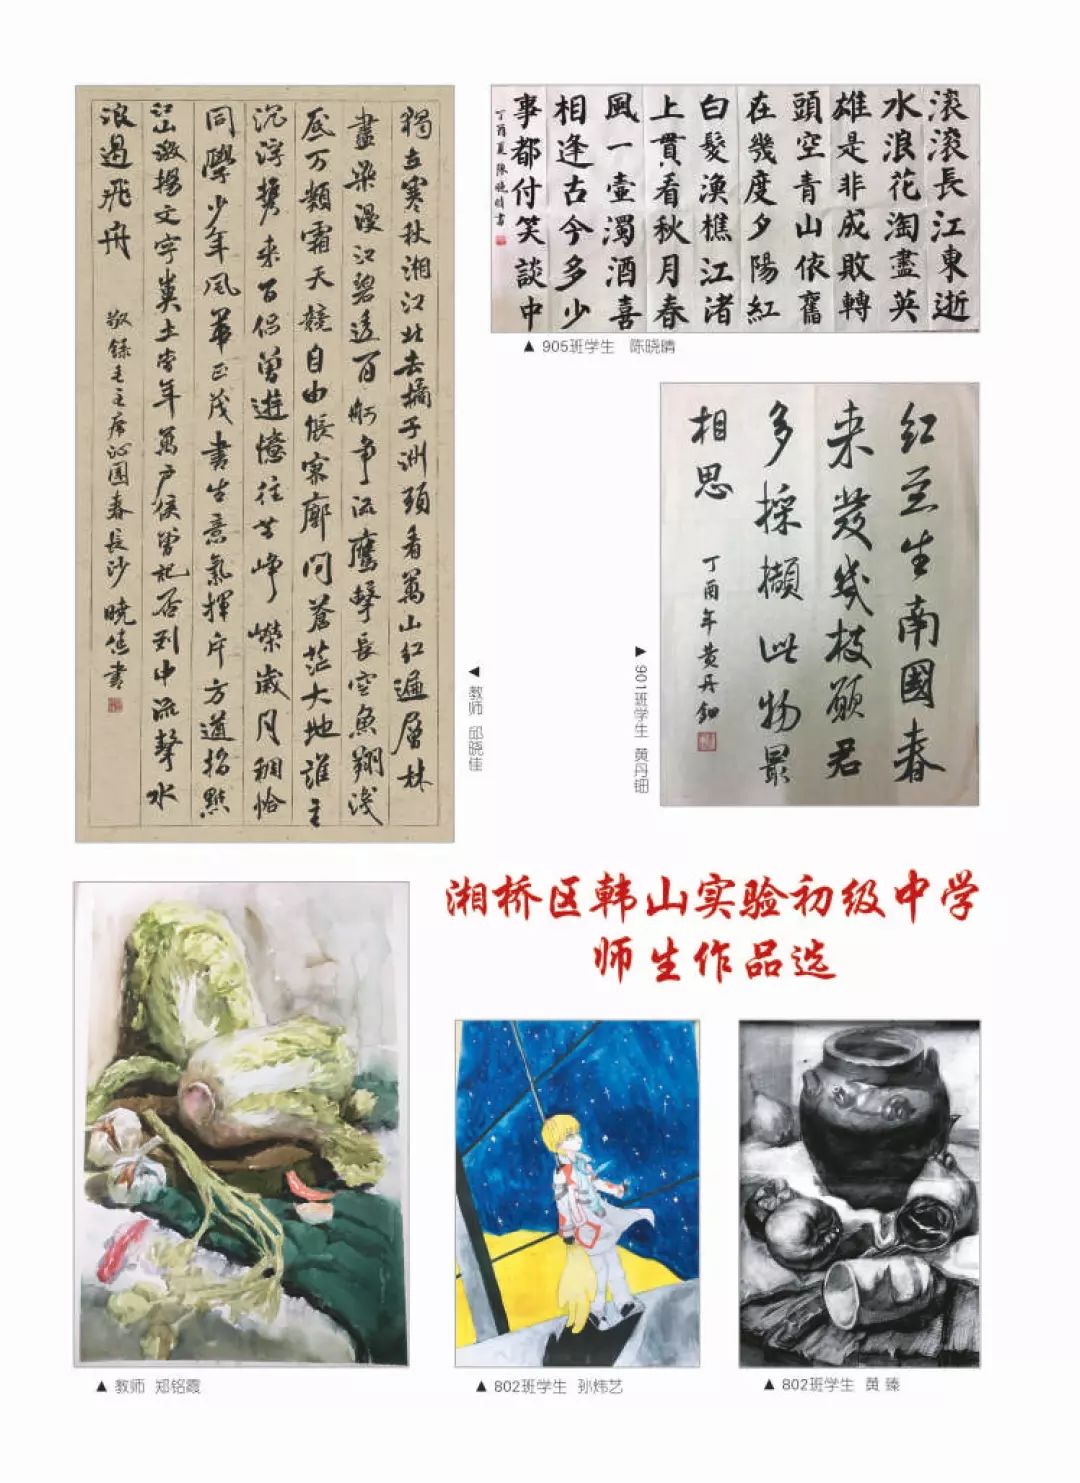 獨立寒秋湘江北去橘子洲頭看萬山紅遍層林
盡染漫江碧透百舸争流鷹擊長空魚翔淺
底万類霜天競自由悵寥廓問蒼茫大地誰主
沉浮携来百侣曾遊憶往昔崢嶸歲月稠恰
同學少年風華正茂書生意氣揮斥方遒指點
江山激揚文字糞土當年萬户侯曾記否到中流擊水
浪遏飛舟
敬錄毛主席沁園春長沙 曉佳書
◀ 教师 邱晓佳
滚滚長江東逝
水浪花淘盡英
雄是非成敗轉
頭空青山依舊
在幾度夕陽紅
白髮漁樵江渚
上貫看秋月春
風一壺濁酒喜
相逢古今多少
事都付笑談中
丁酉夏陳曉晴書
▲ 905班学生 陈晓晴
红豆生南國春
来發幾枝願君
多採擷此物最
相思
丁酉年黄丹鈿
▶ 901班学生 黄丹钿
湘桥区韩山实验初级中学
师生作品选
▲ 教师 郑铭霞
▲ 802班学生 孙炜艺
▲ 802班学生 黄 臻